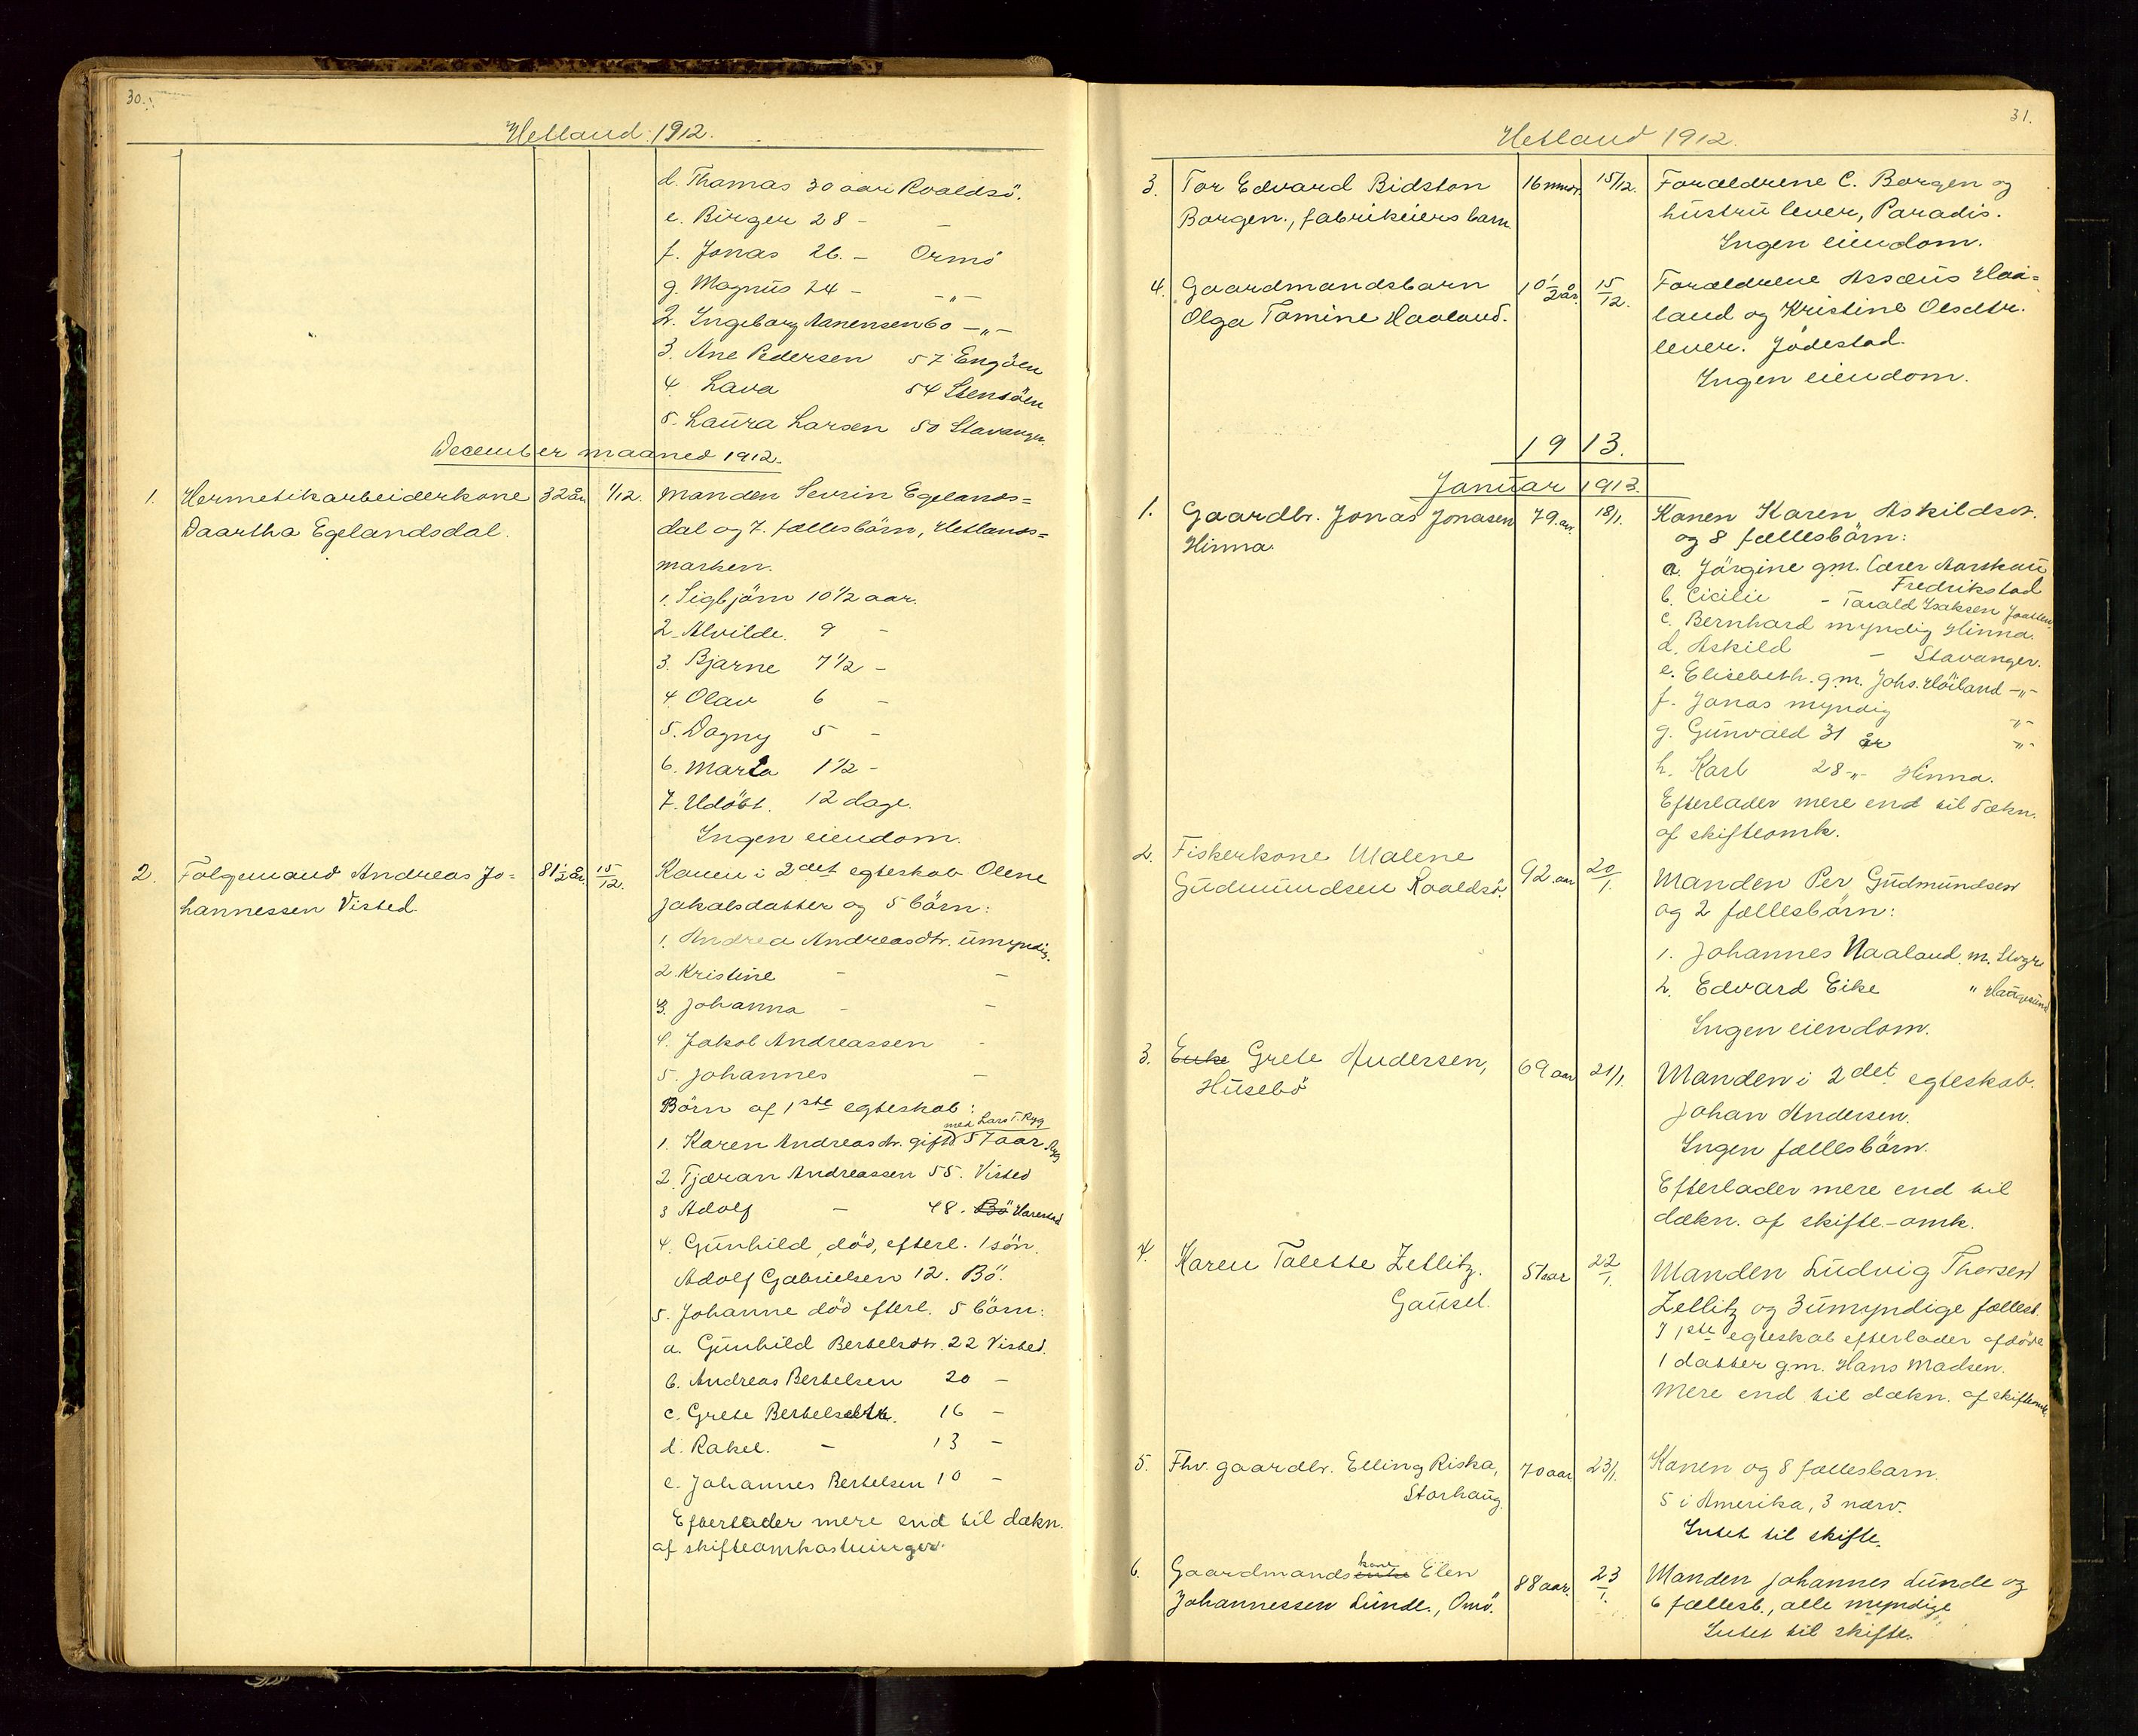 30.
Hetland 1912.
d. Thomas 30 aar Roaldsö.
e. Birger 28 - -
f. Jonas 26. - Ormö
g. Magnus 24 - -"-
2. Ingeborg Aanensen 60 -"-
3. Ane Pedersen 57 Engöen
4. Lava 54 Stensöen
5. Laura Larsen 50 Stavanger.
December maaned 1912.
1. Hermetikarbeiderkone 32 år 1/12. Manden Sevrin Egelands=
Daartha Egelandsdal. dal og 7. fællesbörn, Hetlands=
marken.
1. Sigbjörn 10 1/2 aar.
2. Alvilde. 9 -
3. Bjarne 7 1/2 -
4. Olav 6 -
5. Dagny 5 -
6. Marta 1 1/2 -
7. Udöbt. 12 dage.
Ingen eiendom.
2. Folgemand Andreas Jo= 81 1/2 år. 15/12. Konen i 2det egteskab Olene
hannessen Visted. Jakobsdatter og 5 börn:
1. Andrea Andreasdtr. umyndig.
2. Kristine - -
3. Johanna - -
4. Jakob Andreassen -
5. Johannes -
Börn af 1ste egteskab:
med Lars T. Ryg
1. Karen Andreasdtr. gift 57 aar Ryg
2. Tjæran Andreassen 55. Visted
3 Adolf - 48. Bö Harestad
4. Gunhild, död, efterl. 1 sön.
Adolf Gabrielsen 12. Bö.
5. Johanne död efterl. 5 börn:
a. Gunhild Bertelsdtr. 22 Visted.
b. Andreas Bertelsen 20 -
c. Grete Bertelsdtr. 16 -
d. Rakel. - 13 -
e. Johannes Bertelsen 10 -
Efterlader mere end til dækn.
af skifteomkostninger.
31.
Hetland 1912.
3. Tor Edvard Bidston 16 mndr. 15/12. Forældrene C. Borgen og
Borgen., fabrikeiers barn hustru lever, Paradis.
Ingen eiendom.
4. Gaardmandsbarn 10 1/2 år. 15/12. Forældrene Assæus Haa=
Olga Tomine Haaland. land og Kristine Olsdtr.
lever. Jödestad.
Ingen eiendom.
1913.
Januar 1913.
1. Gaardbr. Jonas Jonasen 79. aar. 18/1. Konen Karen Askildsdt.
Hinna. og 8 fællesbörn:
a. Jörgine gm. Aarskau
Fredrikstad
b. Cicilie - Tarald Isaksen Jaatten.
c. Bernhard myndig Hinna.
d. Askild - Stavanger.
e. Elisebeth. g.m. Johs. Höiland -"-
f. Jonas myndig -"-
g. Gunvald 31 år -"-
h. Karl 28 -"- Hinna.
Efterlader mere end til dækn.
af skifteomk.
2. Fiskerkone Malene 92. aar 20/1. Manden Per Gudmundsen
Gudmundsen Roaldsö. og 2 fællesbörn:
1. Johannes Haaland. m. Stvgr
2. Edvard Eike " Haugesund
Ingen eiendom.
3. Enke Grete Andersen, 69 aar 21/1. Manden i 2det egteskab.
Husebö Johan Andersen.
Ingen fællesbörn.
Efterlader mere end til
dækn. af skifte-omk.
4. Karen Talette Zetlitz. 51 aar 22/1. Manden Ludvig Thorsen
Gausel. Zetlitz og 3 umyndige fællesb.
I 1ste egteskab efterlader afdöde
1 datter g.m. Hans Madsen.
Mere end til dækn. af skifteomk.
5. Fhv. gaardbr. Elling Riska, 70 aar 23/1. Konen og 8 fællesbarn.
Storhaug. 5 i Amerika, 3 nærv.
Intet til skifte.
6. Gaardmands enke kone Elen 88 aar. 23/1. Manden Johannes Lunde og
Johannessen Lunde., Omö. 6 fællesb., alle myndige
Intet til skifte.